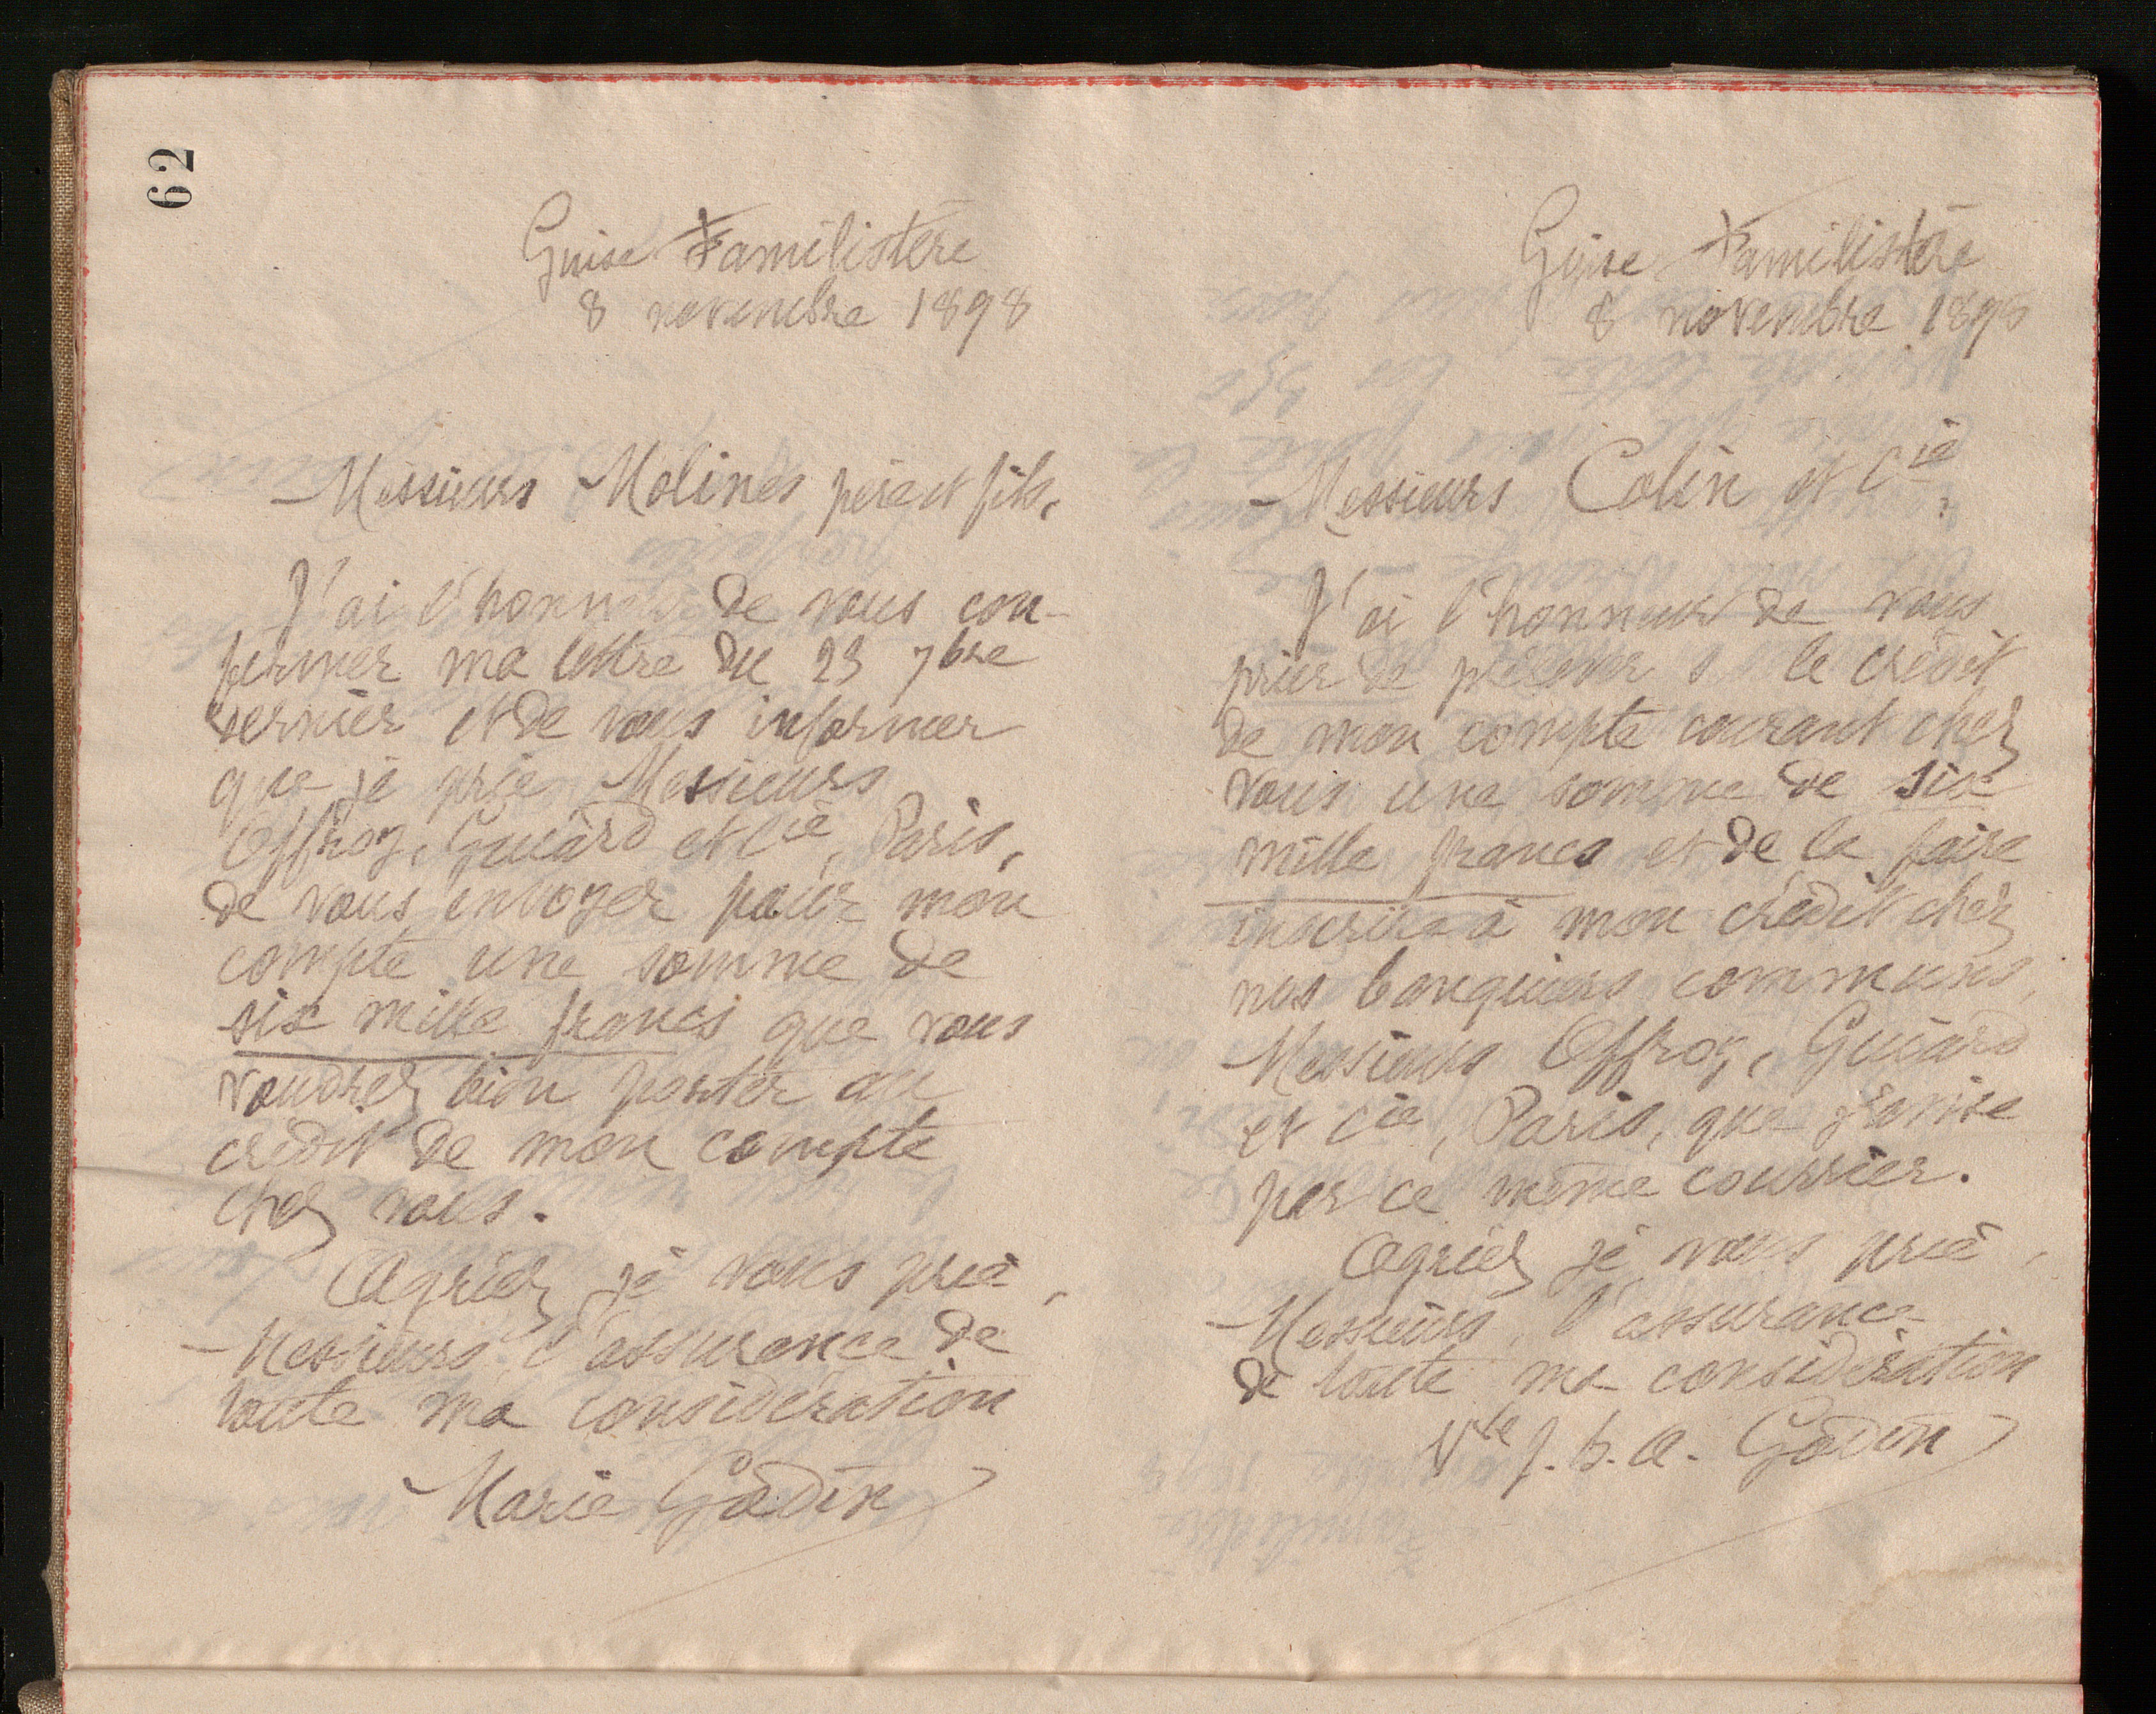 62
Guise Familistère
8 novembre 1898
Messieurs Molines père et fils,
J'ai l'honn de vous con-
firmer ma lettre du 23 7bre
dernier et de vous informer
que je prie Messieurs
Offroy, Guiard et Cie, Paris,
de vous envoyer pour mon
compte une somme de
six mille francs que vous
voudrez bien porter au
crédit de mon compte
chez vous.
Agréez, je vous prie,
Messieurs l'assurance de
toute ma considération
Marie Godin
Guise Familistère
8 novembre 1898
Messieurs Colin et Cie,
J'ai l'honneur de vous
prier de prélever s le crédit
de mon compte courant chez
vous une somme de six
mille francs et de la faire
inscrire à mon crédit chez
nos banquiers communs,
Messieurs Offroy, Guiard
et Cie, Paris, que j'avise
par ce même courrier.
Agréez je vous prie,
Messieurs, l'assurance
de toute ma considération
Vve J. B. A. Godin